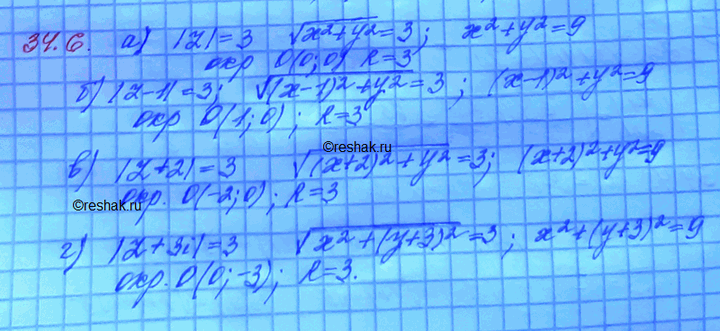 34.6. а) |z|=3 √(x²+y²)=3; x²+y²=9
окр O(0;0) R=3
б) |z-1|=3; √((x-1)²+y²)=3; (x-1)²+y²=9
окр O(1;0); R=3
©reshak.ru
в) |z+2|=3 √((x+2)²+y²)=3; (x+2)²+y²=9
окр. O(-2;0); R=3
©reshak.ru
г) |z+3i|=3 √(x²+(y+3)²)=3; x²+(y+3)²=9
окр. O(0;-3); R=3.